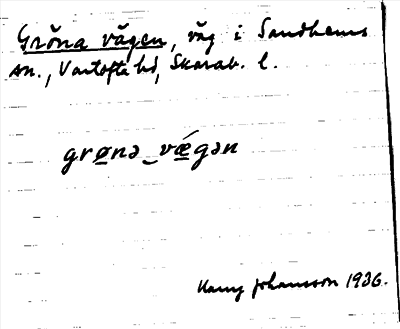 Gröna vägen, väg i Sandhems
sn., Vartofta hd, Skarab. l.
grønə‿vǽgən
Harry Johansson 1936.